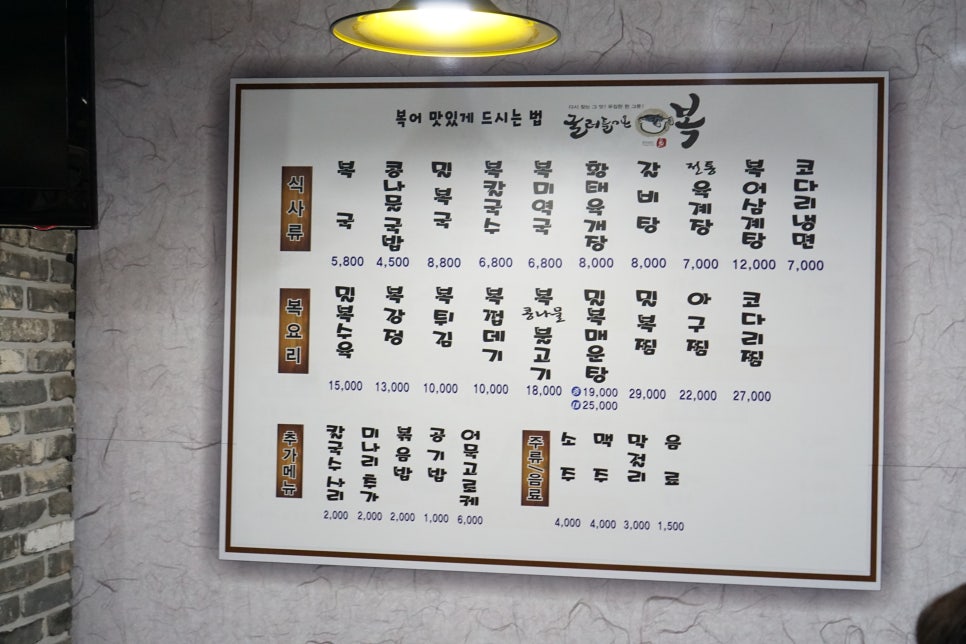 복어 맛있게 드시는 법
굴러들어온 복
식사류
복국 5,800
콩나물국밥 4,500
밀복국 8,800
복칼국수 6,800
복미역국 6,800
황태육개장 8,000
갈비탕 8,000
전통육계장 7,000
복어삼계탕 12,000
코다리냉면 7,000
복요리
밀복수육 15,000
복강정 13,000
복튀김 10,000
복껍데기 10,000
복콩나물불고기 18,000
밀복매운탕 19,000 25,000
밀복찜 29,000
아구찜 22,000
코다리찜 27,000
추가메뉴
칼국수사리 2,000
미나리추가 2,000
볶음밥 2,000
공기밥 1,000
어묵고로케 6,000
주류/음료
소주 4,000
맥주 4,000
막걸리 3,000
음료 1,500